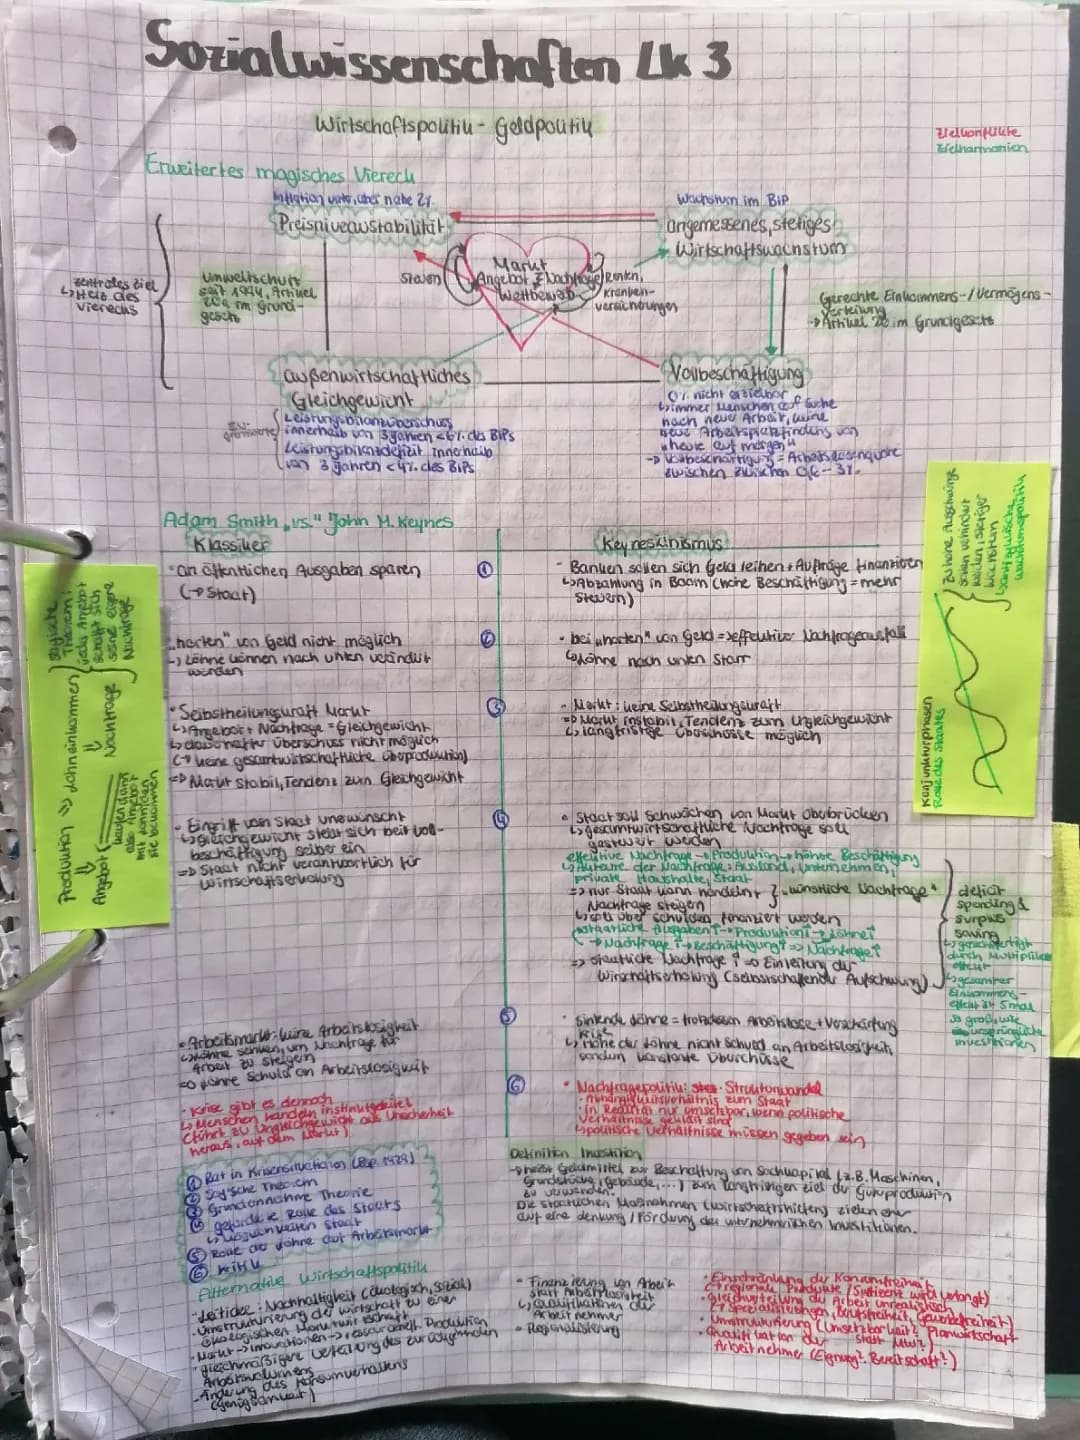 Sozialwissenschaften Lk 3
Wirtschaftspolitik - Geldpolitik
Zielkonflikte
Zielharmonien
Erweitertes magisches Viereck
Inflation unter, aber nahe 2%
Preisniveaustabilität
Wachstum im BIP
angemessenes, stetiges
Wirtschaftswachstum
zentrales Ziel
↳ Herz des
Vierecks
Umweltschutz
seit 1994, Artikel
20a im Grund-
gesetz
Steuern
Markt
Angebot ⇄ Nachfrage
Wettbewerb
Renten,
Kranken-
versicherungen
Gerechte Einkommens-/Vermögens-
verteilung
→ Artikel 20 im Grundgesetz
außenwirtschaftliches
Gleichgewicht
Leistungsbilanzüberschuss
innerhalb von 3 Jahren <6% des BIPs
Leistungsbilanzdefizit innerhalb
von 3 Jahren <4% des BIPs
Vollbeschäftigung
0% nicht erzielbar
↳ immer Menschen auf Suche
nach neuer Arbeit, keine
neue Arbeitsplatzfindung von
"heute auf morgen"
→ Vollbeschäftigung = Arbeitslosenquote
zwischen zwischen 0,8 - 3%
Adam Smith "vs." John M. Keynes
Klassiker
Keynesianismus
• an öffentlichen Ausgaben sparen
(→ Staat)
①
• Banken sollen sich Geld leihen + Aufträge finanzieren
↳ Abzahlung in Boom (hohe Beschäftigung = mehr
Steuern)
"horten" von Geld nicht möglich
→ Löhne können nach unten verändert
werden
②
• bei "horten" von Geld => effektiver Nachfrageausfall
↳ Löhne nach unten starr
• Selbstheilungskraft Markt
↳ Angebot + Nachfrage = Gleichgewicht
↳ dauerhafter Überschuss nicht möglich
(→ keine gesamtwirtschaftliche Überproduktion)
=> Markt stabil, Tendenz zum Gleichgewicht
③
- Markt: keine Selbstheilungskraft
=> Markt instabil, Tendenz zum Ungleichgewicht
↳ langfristige Überschüsse möglich
• Eingriff vom Staat unerwünscht
↳ Gleichgewicht stellt sich bei Voll-
beschäftigung selber ein
=> Staat nicht verantwortlich für
Wirtschaftserholung
④
• Staat soll Schwächen von Markt überbrücken
↳ gesamtwirtschaftliche Nachfrage soll
gesteuert werden
effektive Nachfrage → Produktion → höhere Beschäftigung
↳ Akteure der Nachfrage: Ausland, Unternehmen,
private Haushalte, Staat
=> nur Staat kann handeln +
Nachfrage steigern
"künstliche Nachfrage"
↳ soll über Schulden finanziert werden
(staatliche Ausgaben↑ → Produktion↑ → Löhne↑
→ Nachfrage↑ → Beschäftigung↑ => Nachfrage↑
=> staatliche Nachfrage↑ => Einleitung der
Wirtschaftserholung (selbstschaffender Aufschwung)
deficit
spending &
surplus
saving
↳ gerechtfertigt
durch Multiplikator-
effekt
↳ gesamter
Einkommens-
effekt ist 5mal
so groß, wie
ursprüngliche
Investitionen
• Arbeitsmarkt: keine Arbeitslosigkeit
↳ Löhne senken, um Nachfrage für
Arbeit zu steigern
=> Löhne Schuld an Arbeitslosigkeit
⑤
• Sinkende Löhne = trotzdem Arbeitslose + Verschärfung
Krise
↳ Höhe der Löhne nicht Schuld an Arbeitslosigkeit,
sondern konstante Überschüsse
• Krise gibt es dennoch
↳ Menschen handeln instinktgeleitet
(führt zu Ungleichgewicht aus Unsicherheit
heraus, auf dem Markt)
⑥
• Nachfragepolitik: Strukturwandel
• Abhängigkeitsverhältnis zum Staat
• in Realität nur umsetzbar, wenn politische
Verhältnisse geklärt sind
↳ politische Verhältnisse müssen gegeben sein
① Rat in Krisensituationen (Bsp. 1929)
② Say'sche Theorem
③ Grundannahme Theorie
④ geforderte Rolle des Staats
↳ Möglichkeiten Staat
⑤ Rolle der Löhne auf Arbeitsmarkt
⑥ Kritik
Definition Investition
→ heißt Geldmittel zur Beschaffung von Sachkapital (z.B. Maschinen,
Grundstücke, Gebäude, ...) zum langfristigen Ziel der Güterproduktion
zu verwenden.
Die staatlichen Maßnahmen (Wirtschaftshilfen) zielen eher
auf eine Lenkung / Förderung der unternehmerischen Investitionen.
Alternative Wirtschaftspolitik
- Leitidee: Nachhaltigkeit (ökologisch, sozial)
- Umstrukturierung der Wirtschaft zu einer
ökologischen Kreislaufwirtschaft
- Markt → Innovationen → ressourcen eff. Produktion
- gleichmäßigere Verteilung des zurückgehenden
Arbeitsvolumens
- Änderung des Konsumverhaltens
(Genügsamkeit)
• Finanzierung von Arbeit
statt Arbeitslosigkeit
↳ Qualifikationen der
Arbeitnehmer
• Regionalisierung
• Einschränkung der Konsumfreiheit
(regionale Produkte / Suffizient wird verlangt)
• Gleichverteilung der Arbeit unrealistisch
(→ Spezialisierungen, Berufsfreiheit, Gewerbefreiheit)
• Umstrukturierung (Umsetzbarkeit? Planwirtschaft
statt MW?)
• Qualifikation der
Arbeitnehmer (Eignung? Bereitschaft?)
Produktion => Lohneinkommen
Angebot
Nachfrage
saysche
Theorem:
jedes Angebot
schafft sich
seine eigene
Nachfrage
kaufen dann
das Angebot
mit dem, den
sie bekommen
Konjunkturphasen
Rolle des Staates
zu hohe Ausschläge
sollen verhindert
werden, stetiger
Wachstum
↳ antizyklische